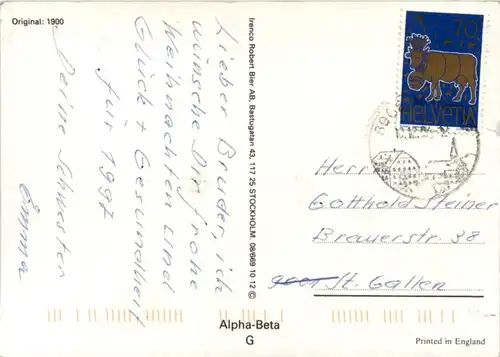 Original: 1900
Lieber Bruder, ich
wünsche Dir frohe
Weihnachten und
Glück + Gesundheit
für 1997
Deine Schwester
Emma
Irenco Robert Bier AB, Bastugatan 43, 117 25 STOCKHOLM. 08/669 10 12 ©
70
HELVETIA
Herr
Gotthold Steiner
Brauerstr. 38
St. Gallen
Alpha-Beta
G
Printed in England